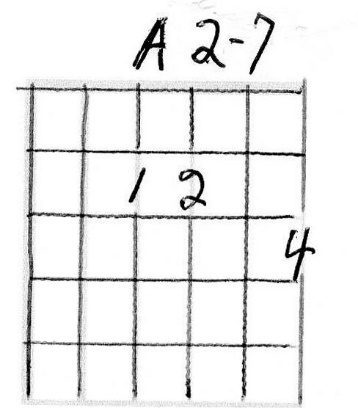 A 2-7
1 2
4